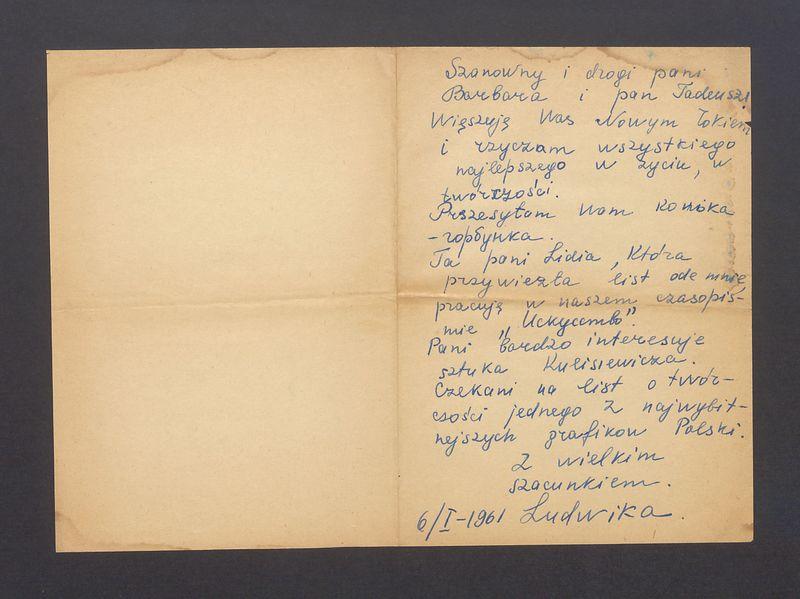 Szanowny i drogi pani
Barbara i pan Tadeusz!
Więszyję Was Nowym Rokiem
i rzyczam wszystkiego
najlepszego w życiu, w
twórczości.
Przesyłam Wam Konika
-горбунка.
Ta pani Lidia, Która
przywiezła list ode mnię,
pracują w naszem czasopis-
mie „Uckycembo".
Pani bardzo interesuje
sztuka Kulisiewicza.
Czekani na list o twór-
czości jednego z najwybit-
nejszych grafikow Polski.
Z wielkim
szacunkiem.
6/I-1961 Ludwika.